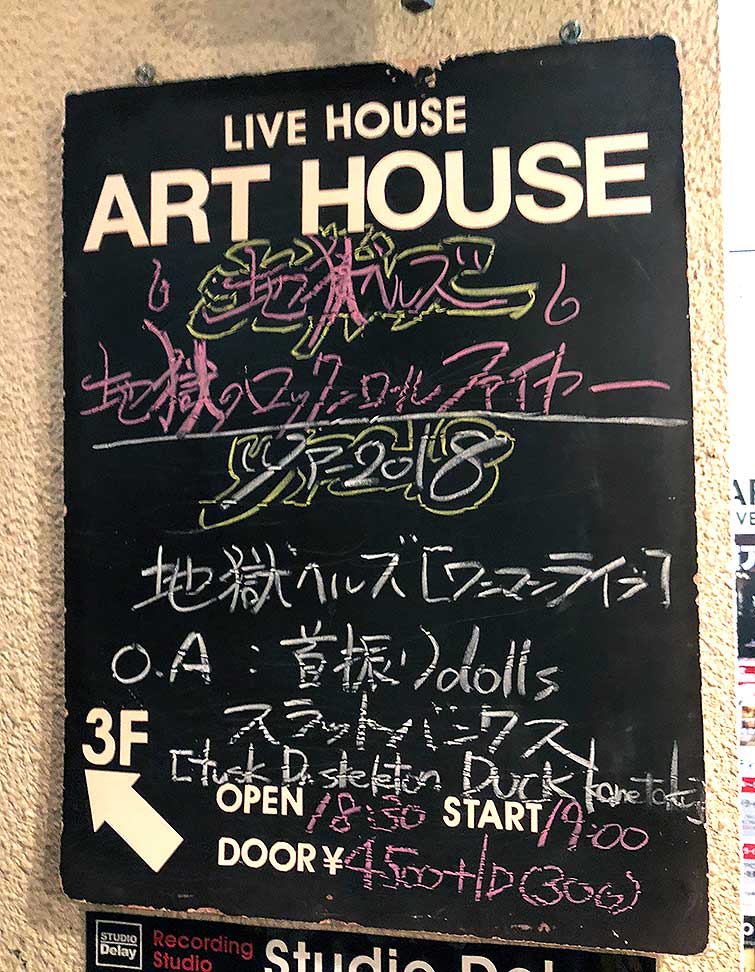 LIVE HOUSE
ART HOUSE
地獄ヘルズ
地獄のロックンロールファイヤー
ツアー2018
地獄ヘルズ[ワンマンライブ]
O.A : 首振りdolls
スラットバンクス
3F
[tusk D skeleton Duck kanetaku]
OPEN 18:30 START 19:00
DOOR ¥ 4500+1D(300)
STUDIO
Delay
Recording
Studio
Studio